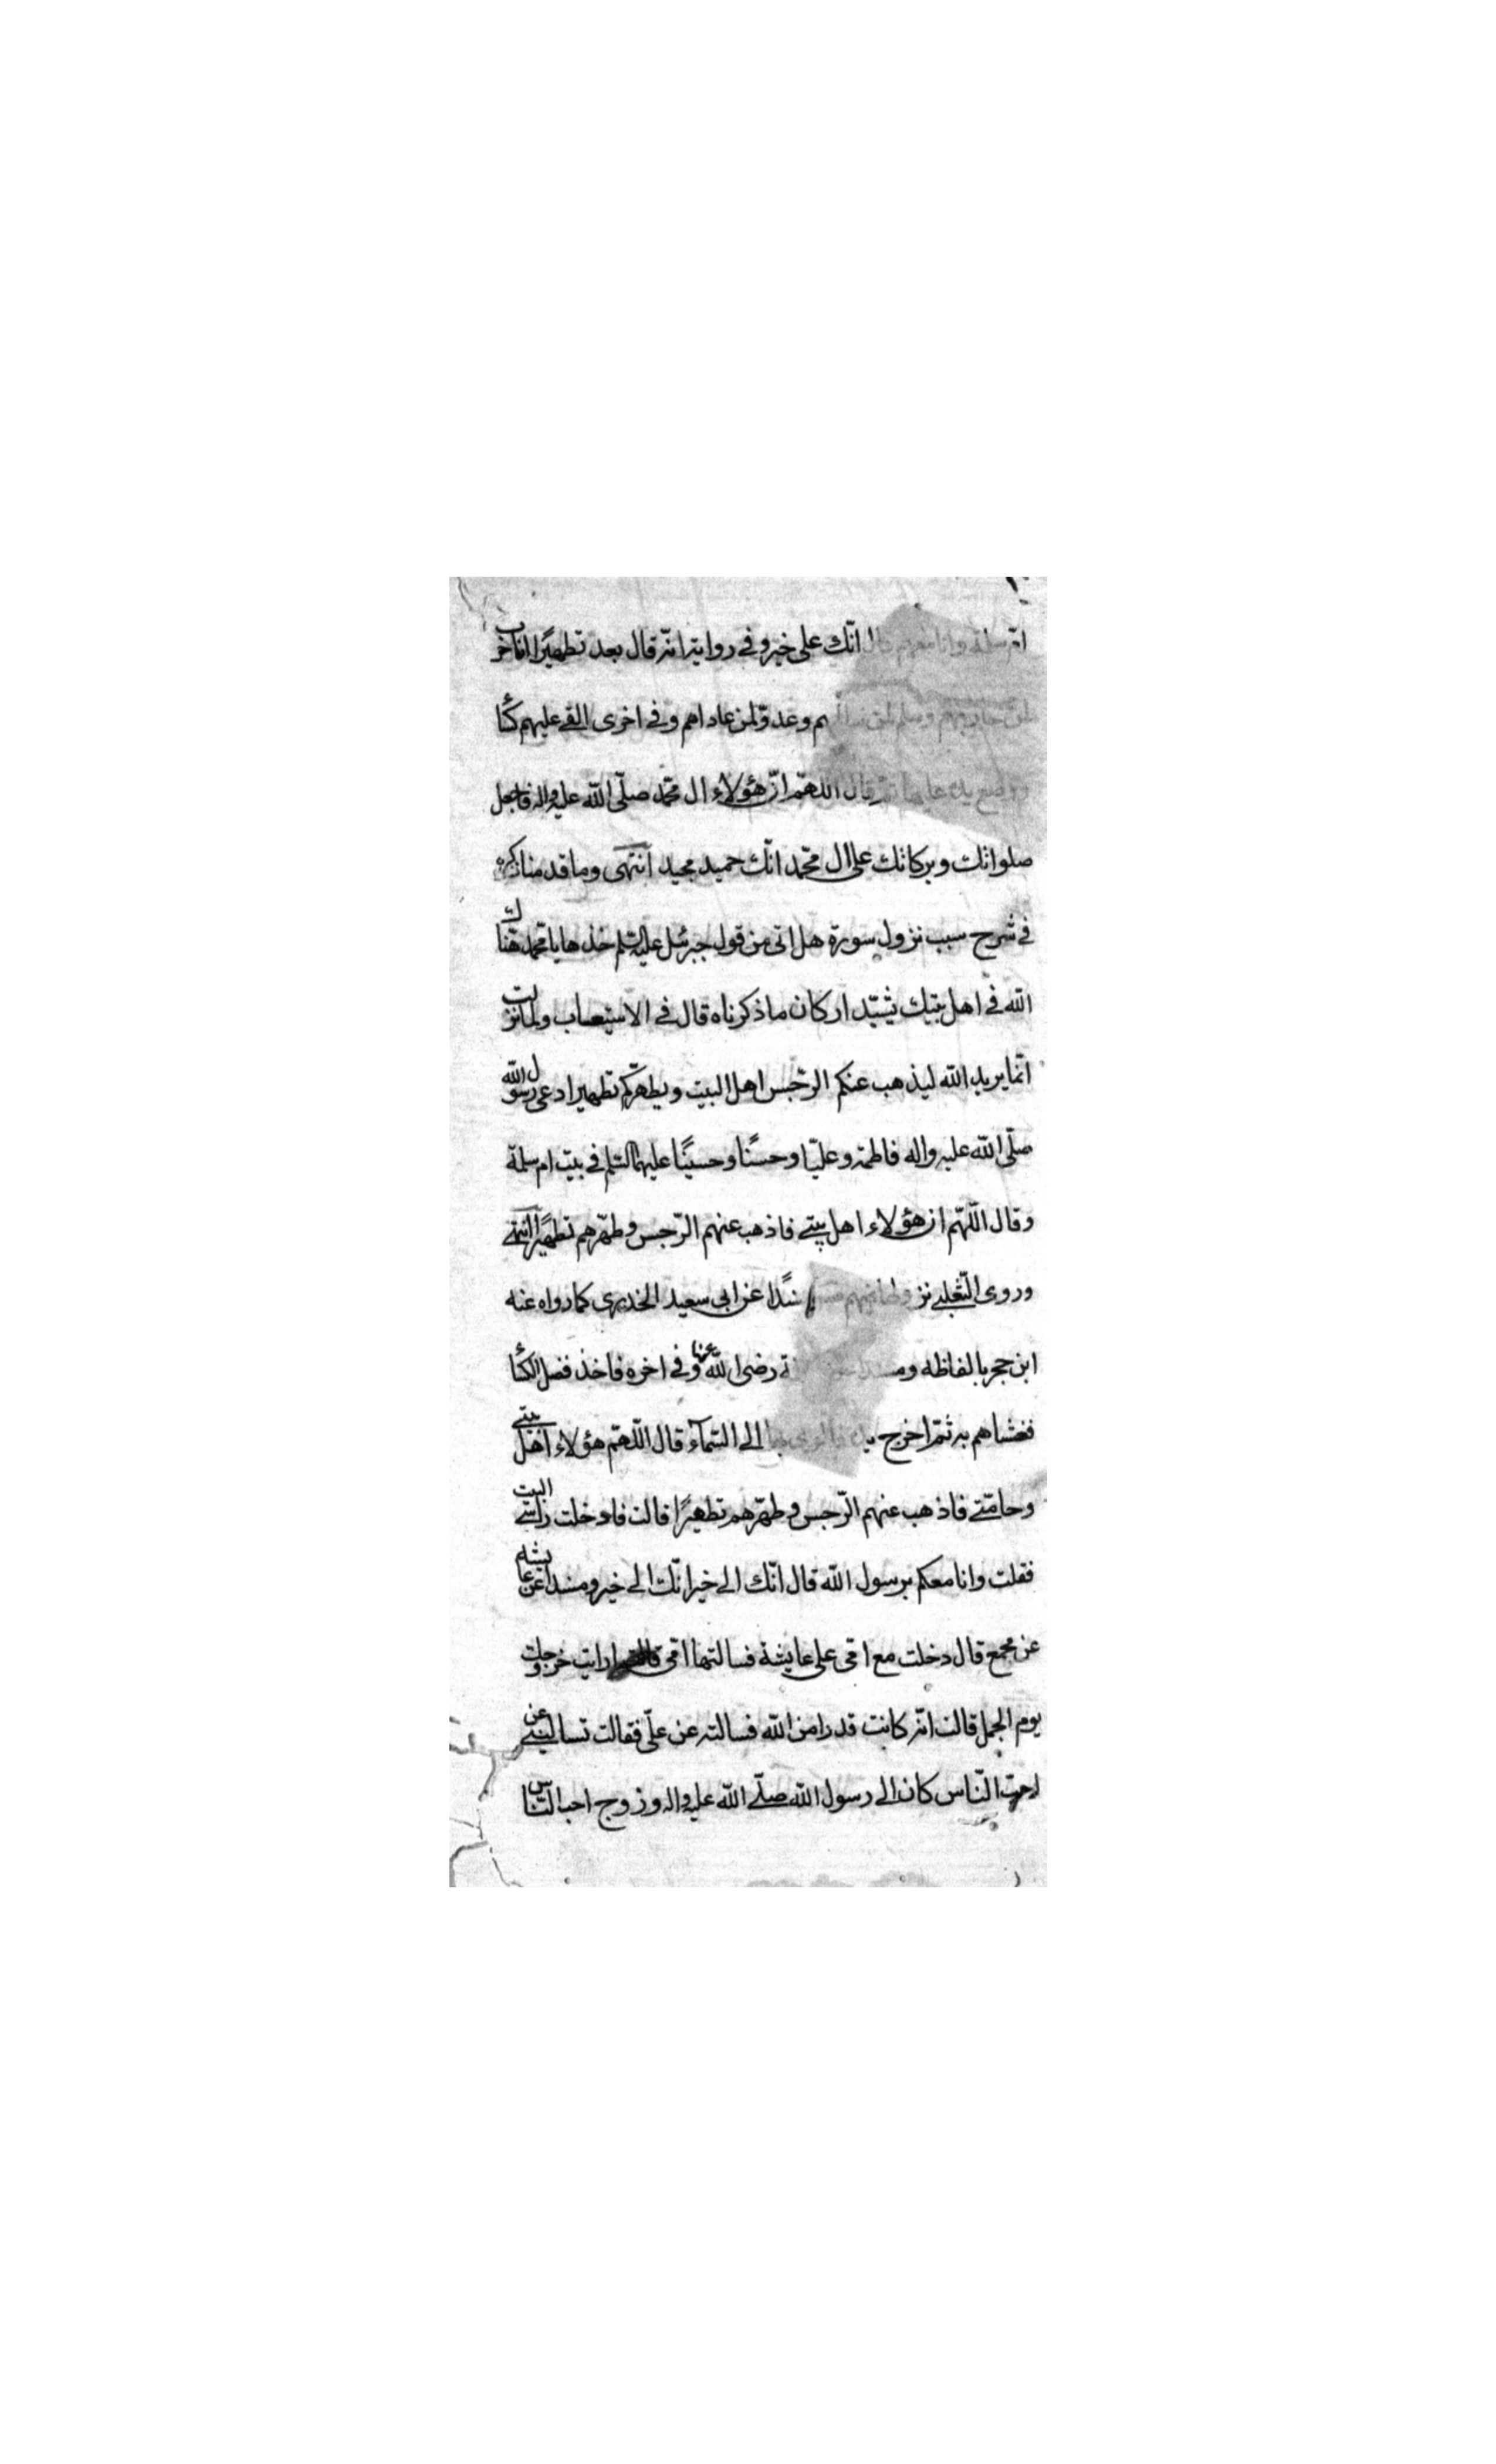 ام سلمة وانا معهم قال انّك على خير وفي رواية انّه قال بعد تطهيرًا انا حرب
لمن حاربهم وسلم لمن سالمهم وعدوّ لمن عاداهم وفي اخرى القى عليهم كساء
ووضع يده عليها ثمّ قال اللهمّ انّ هؤلاء ال محمّد صلّى الله عليه واله فاجعل
صلواتك وبركاتك على ال محمّد انّك حميد مجيد انتهى وما قدمنا ذكره
في شرح سبب نزول سورة هل اتى من قول جبرئيل عليه السلم خذها يا محمّد هنّاك
الله في اهل بيتك يشيّد اركان ما ذكرناه قال في الاستيعاب ولما نزلت
انّما يريد الله ليذهب عنكم الرّجس اهل البيت ويطهّركم تطهيرا دعى رسول الله
صلّى الله عليه واله فاطمة وعليّا وحسنًا وحسينًا عليهما السّلم في بيت ام سلمة
وقال اللّهمّ ان هؤلاء اهل بيتي فاذهب عنهم الرّجس وطهّرهم تطهيرًا انتهى
وروى الثّعلبي نزولها فيهم مسندًا عن ابي سعيد الخدري كما رواه عنه
ابن حجر بالفاظه ومسندا رضى الله عنها وفي اخره فاخذ فضل الكساء
فغشاهم به ثمّ اخرج يده فالوى بها الى السّماء قال اللّهمّ هؤلاء اهل بيتي
وحامّتي فاذهب عنهم الرّجس وطهّرهم تطهيرًا قالت فادخلت راسي البيت
فقلت وانا معكم يرسول الله قال انّك الى خير انّك الى خير ومسندا عن عايشه
عن مجمع قال دخلت مع امّى على عايشة فسالتها امّى قالت ارايت خروجك
يوم الجمل قالت انّه كانت قدرا من الله فسالته عن علّى فقالت تسالينى عن
احبّ النّاس كان الى رسول الله صلّى الله عليه واله وزوج احب النّاس